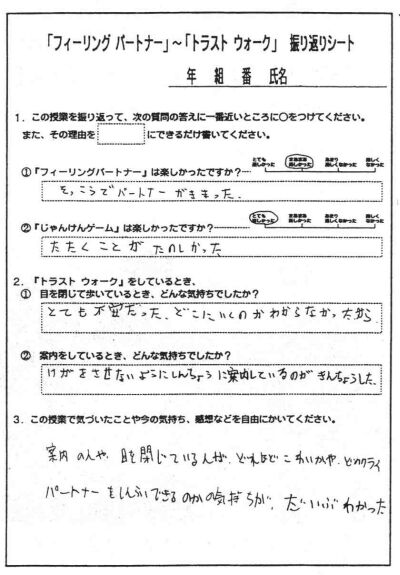 「フィーリング パートナー」～「トラスト ウォーク」 振り返りシート
年 組 番 氏名
1．この授業を振り返って、次の質問の答えに一番近いところに○をつけてください。
また、その理由を にできるだけ書いてください。
とても楽しかった まあまあ楽しかった あまり楽しくなかった 楽しくなかった
①「フィーリングパートナー」は楽しかったですか？
そっこうでパートナーがきまった.
とても楽しかった まあまあ楽しかった あまり楽しくなかった 楽しくなかった
②「じゃんけんゲーム」は楽しかったですか？
たたくことが たのしかった
2．『トラスト ウォーク』をしているとき、
① 目を閉じて歩いているとき、どんな気持ちでしたか？
とても不安だった、どこにいくのかわからなかったから
② 案内をしているとき、どんな気持ちでしたか？
けがをさせないようにしんちょうに案内しているのが きんちょうした.
3．この授業で気づいたことや今の気持ち、感想などを自由にかいてください。
案内の人や、目を閉じている人が、どれほどこわいかや、どのクライ
パートナーをしんらいできるのかの気持ちが、だいぶわかった